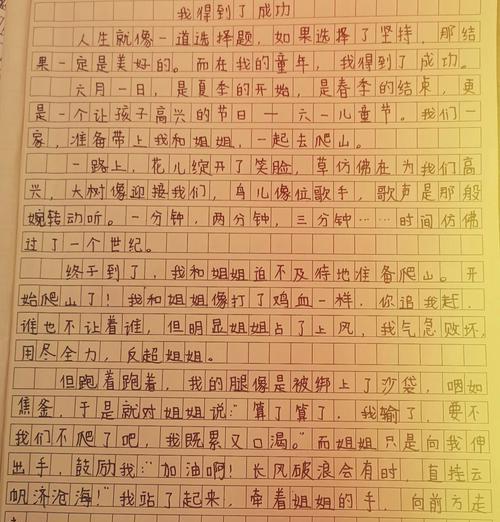 我得到了成功
人生就像一道选择题，如果选择了坚持，那结
果一定是美好的。而在我的童年，我得到了成功。
六月一日，是夏季的开始，是春季的结束，更
是一个让孩子高兴的节日——六一儿童节。我们一
家，准备带上我和姐姐，一起去爬山。
一路上，花儿绽开了笑脸，草仿佛在为我们高
兴，大树像迎接我们，鸟儿像位歌手，歌声是那般
婉转动听。一分钟，两分钟，三分钟……时间仿佛
过了一个世纪。
终于到了，我和姐姐迫不及待地准备爬山。开
始爬山了！我和姐姐像打了鸡血一样，你追我赶，
谁也不让着谁，但明显姐姐占了上风，我气急败坏，
用尽全力，反超姐姐。
但跑着跑着，我的腿像是被绑上了沙袋，咽如
焦釜，于是就对姐姐说：“算了算了，我输了，要不
我们不爬了吧，我既累又口渴。”而姐姐只是向我伸
出手，鼓励我：“加油啊！长风破浪会有时，直挂云
帆济沧海！”我站了起来，牵着姐姐的手，向前方走